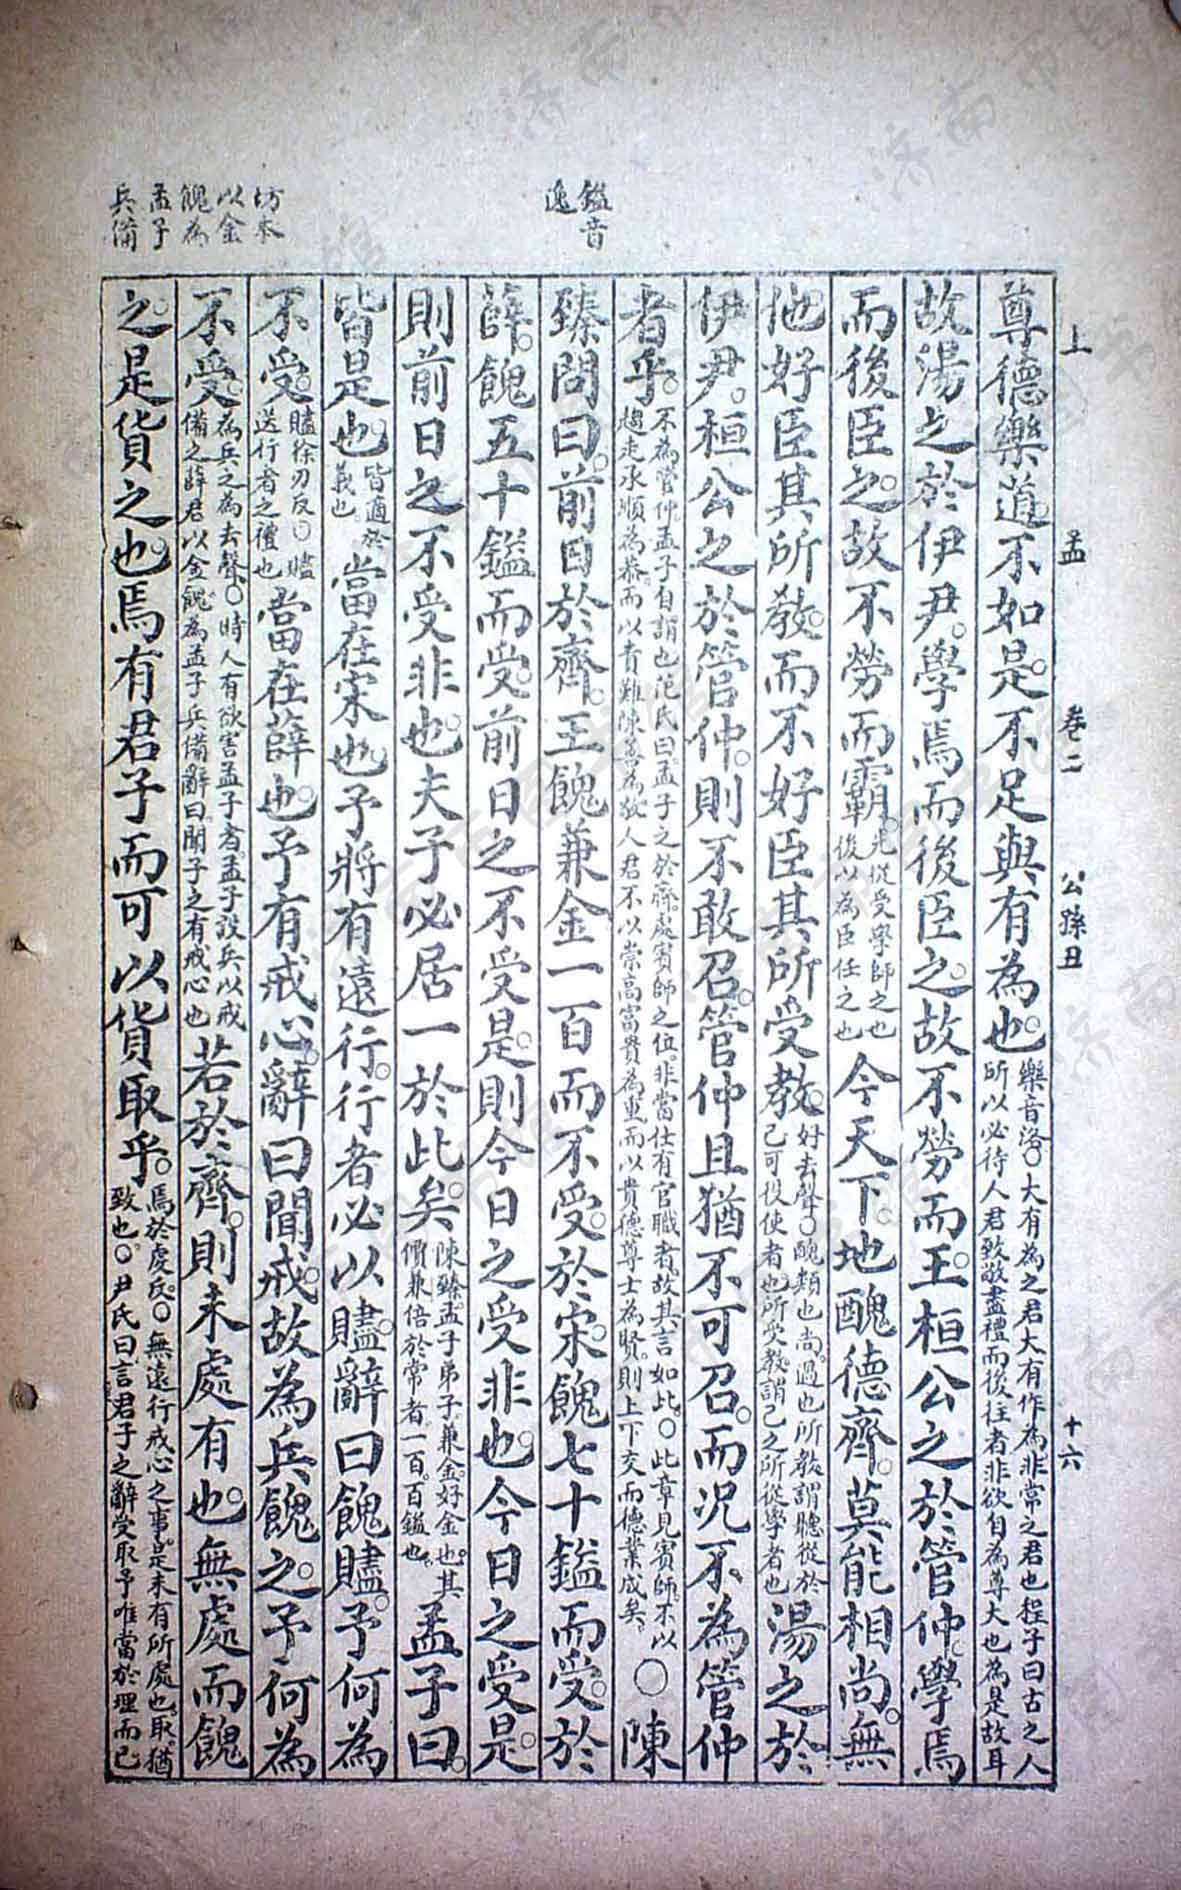 上 孟 卷二 公孫丑 十六
鎰音
逸
坊本
以金
餽為
孟子
兵備
尊德樂道。不如是。不足與有為也。樂音洛。○大有為之君大有作為非常之君也程子曰古之人所以必待人君致敬盡禮而後往者非欲自為尊大也為是故耳
故湯之於伊尹。學焉而後臣之。故不勞而王。桓公之於管仲。學焉
而後臣之。故不勞而霸。先從受學師之也後以為臣任之也今天下。地醜德齊。莫能相尚。無
他好臣其所教。而不好臣其所受教。好去聲○醜類也尚。過也所教。謂聽從於己可役使者也所受教。謂己之所從學者也湯之於
伊尹。桓公之於管仲。則不敢召。管仲且猶不可召。而況不為管仲
者乎。不為管仲。孟子自謂也范氏曰。孟子之於齊。處賓師之位。非當仕有官職者。故其言如此。○此章見賓師。不以趨走承順為恭。而以責難陳善為敬人君不以崇高富貴為重而以貴德尊士為賢。則上下交而德業成矣。○陳
臻問曰。前日於齊。王餽兼金一百而不受。於宋。餽七十鎰而受。於
薛。餽五十鎰而受。前日之不受是。則今日之受非也。今日之受是。
則前日之不受非也。夫子必居一於此矣。陳臻。孟子弟子兼金。好金也。其價兼倍於常者。一百。百鎰也。孟子曰。
皆是也。皆適於義也。當在宋也予將有遠行。行者必以贐。辭曰餽贐。予何為
不受。贐徐刃反○贐送行者之禮也當在薛也。予有戒心。辭曰聞戒。故為兵餽之。予何為
不受。為兵之為去聲○時人有欲害孟子者。孟子設兵以戒備之薛君以金餽。為孟子兵備辭曰聞子之有戒心也若於齊。則未處有也。無處而餽
之。是貨之也。焉有君子而可以貨取乎。焉於虔反。○無遠行戒心之事。是未有所處也。取。猶致也。○尹氏曰言君子之辭受取予唯當於理而已